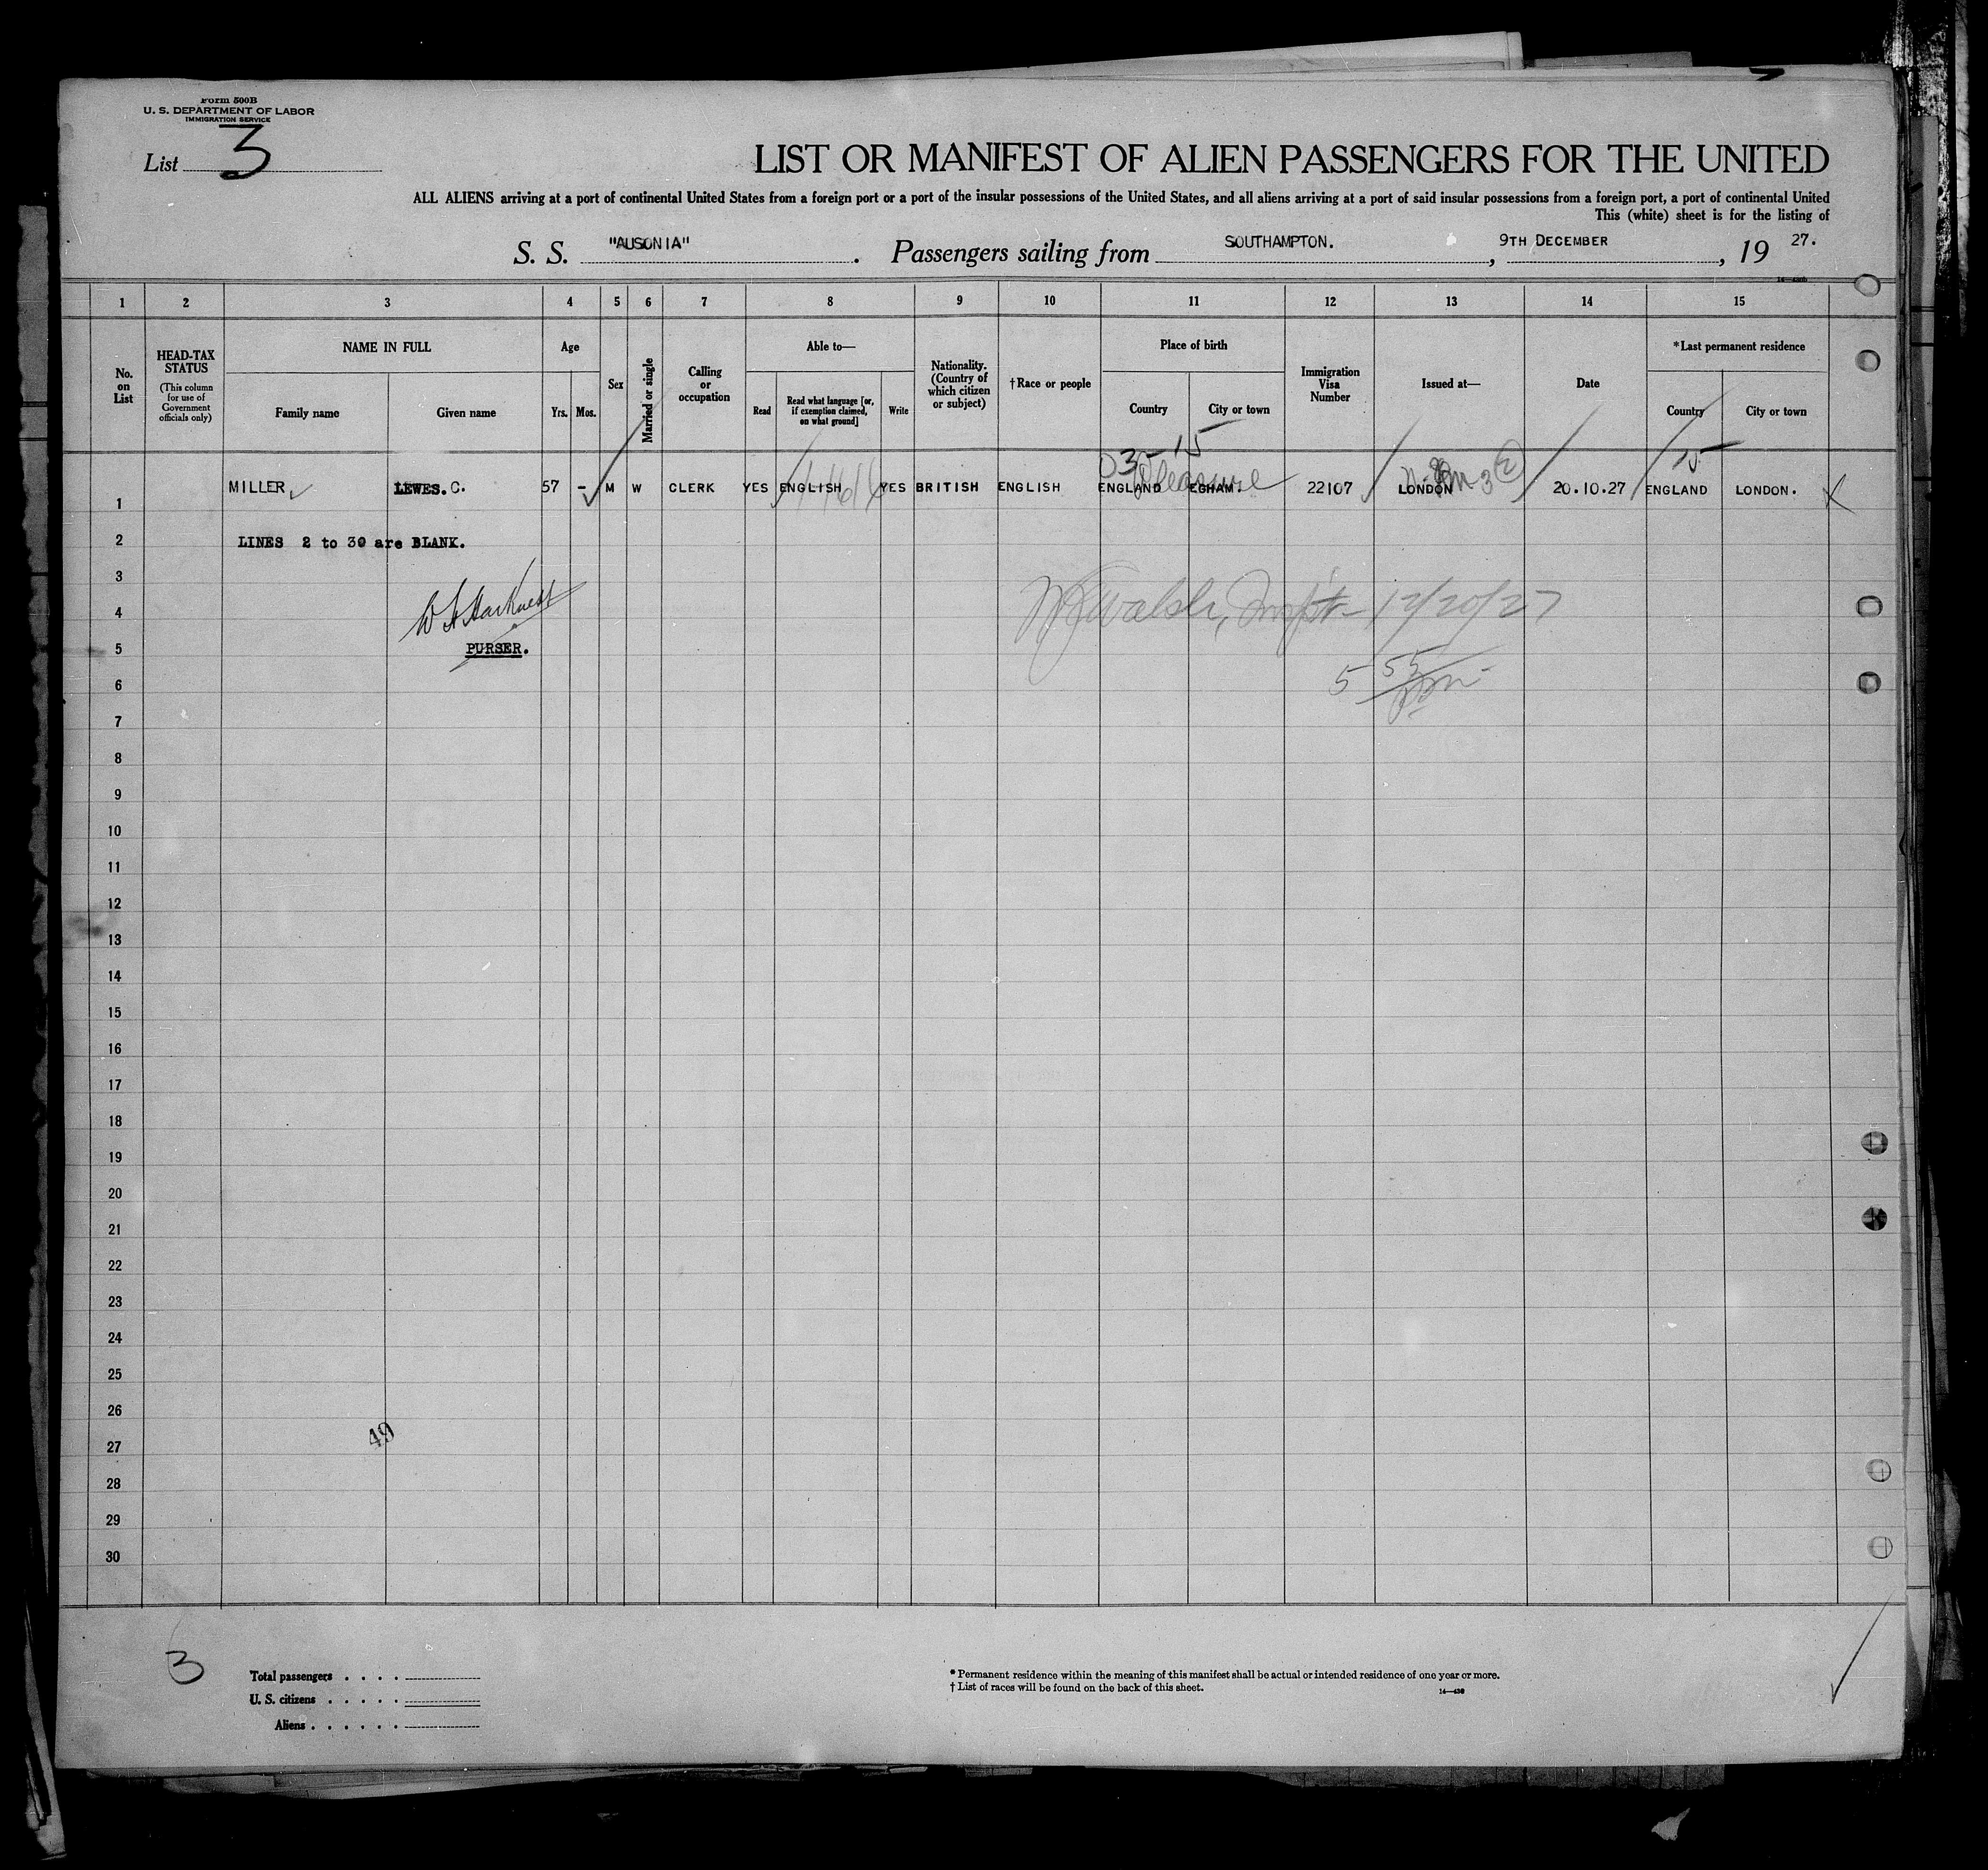 Form 500B
U. S. DEPARTMENT OF LABOR
IMMIGRATION SERVICE
List 3
LIST OR MANIFEST OF ALIEN PASSENGERS FOR THE UNITED
ALL ALIENS arriving at a port of continental United States from a foreign port or a port of the insular possessions of the United States, and all aliens arriving at a port of said insular possessions from a foreign port, a port of continental United
This (white) sheet is for the listing of
S. S. "AUSONIA". Passengers sailing from SOUTHAMPTON. , 9TH DECEMBER , 19 27.
1 2 3 4 5 6 7 8 9 10 11 12 13 14 15
No. on List
HEAD-TAX STATUS (This column for use of Government officials only)
NAME IN FULL
Family name
Given name
Age
Yrs.
Mos.
Sex
Married or single
Calling or occupation
Able to—
Read
Read what language [or, if exemption claimed, on what ground]
Write
Nationality. (Country of which citizen or subject)
†Race or people
Place of birth
Country
City or town
Immigration Visa Number
Issued at—
Date
*Last permanent residence
Country
City or town
03-15 Pleasure
15
1 MILLER LEWES. C. 57 - M W CLERK YES ENGLISH YES BRITISH ENGLISH ENGLAND EGHAM. 22107 LONDON 20.10.27 ENGLAND LONDON.
2 LINES 2 to 30 are BLANK.
3
4 Walsh, 12/20/27
5 PURSER.
6 5 55 pm
7
8
9
10
11
12
13
14
15
16
17
18
19
20
21
22
23
24
25
26
49
27
28
29
30
3
Total passengers . . . .
U. S. citizens . . . . .
Aliens . . . . . .
* Permanent residence within the meaning of this manifest shall be actual or intended residence of one year or more.
† List of races will be found on the back of this sheet.